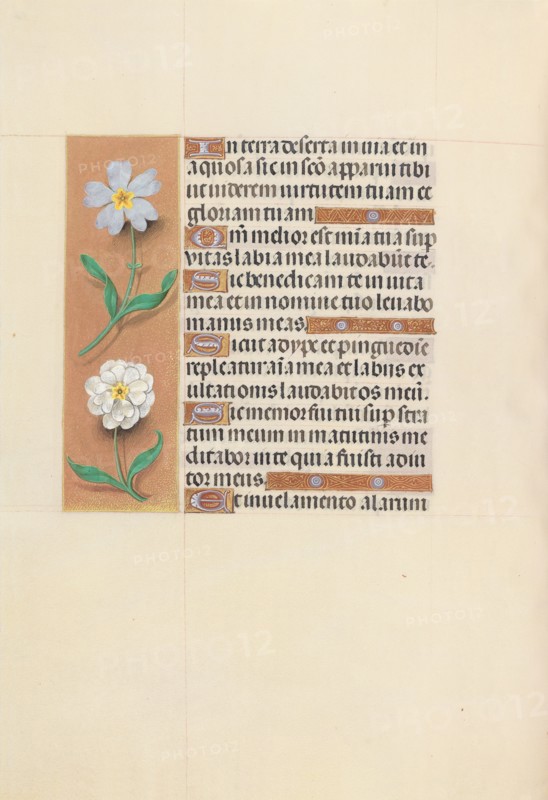 In terra deserta in uia et in
aquosa sic in scō apparui tibi
ut uiderem uirtutem tuam et
gloriam tuam
Qm̄ melior est mīa tua sup
vitas labia mea laudabūt te.
Sic benedicam te in uita
mea et in nomine tuo leuabo
manus meas.
Sicut adype et pinguedīe
repleatur aīa mea et labiis ex
ultationis laudabit os meū.
Sic memor fui tui sup stra
tum meum in matutinis me
ditabor in te quia fuisti adiu
tor meus.
Et in uelamento alarum
PHOTO12